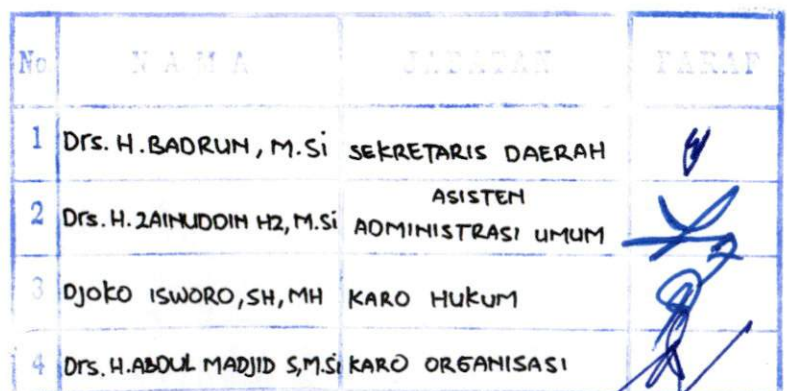 No NAMA JABATAN PARAF
1 Drs. H. BADRUN, M.Si SEKRETARIS DAERAH
ASISTEN
2 Drs. H. ZAINUDDIN HZ, M.Si ADMINISTRASI UMUM
3 DJOKO ISWORO, SH, MH KARO HUKUM
4 Drs. H. ABDUL MADJID S, M.Si KARO ORGANISASI